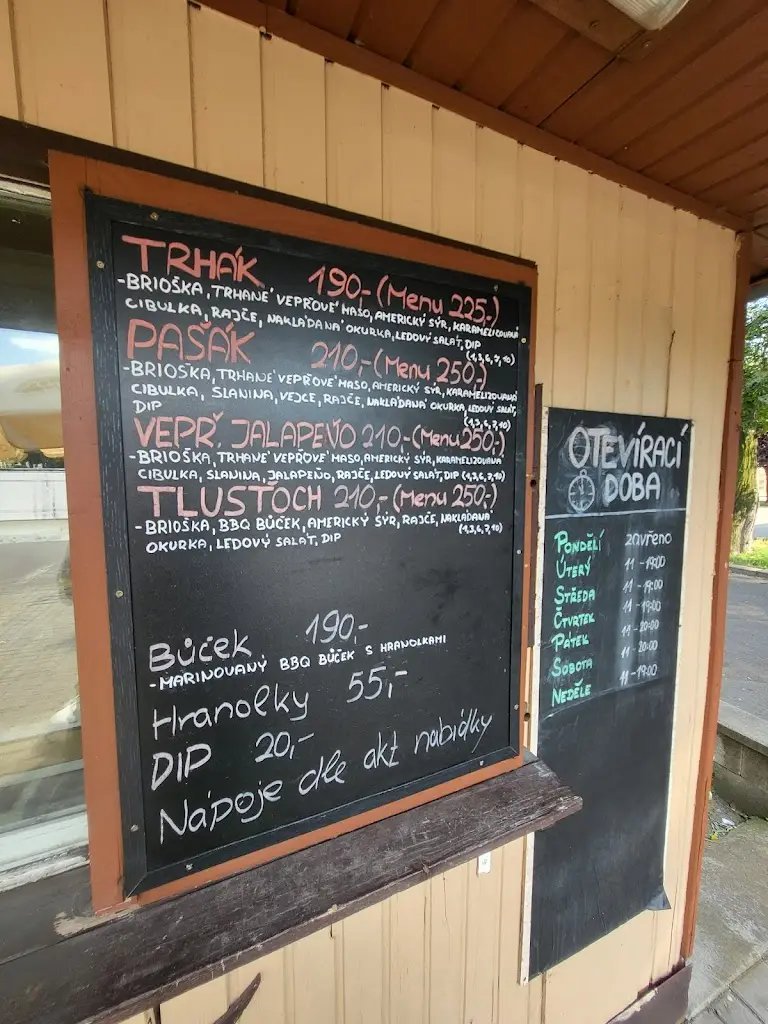 TRHÁK 190,- (Menu 225,-)
-BRIOŠKA, TRHANÉ VEPŘOVÉ MASO, AMERICKÝ SÝR, KARAMELIZOVANÁ
CIBULKA, RAJČE, NAKLÁDANÁ OKURKA, LEDOVÝ SALÁT, DIP
(1,3,6,7,10)
PAŠÁK 210,- (Menu 250,-)
-BRIOŠKA, TRHANÉ VEPŘOVÉ MASO, AMERICKÝ SÝR, KARAMELIZOVANÁ
CIBULKA, SLANINA, VEJCE, RAJČE, NAKLÁDANÁ OKURKA, LEDOVÝ SALÁT,
DIP (1,3,6,7,10)
VEPŘ. JALAPEŇO 210,- (Menu 250,-)
-BRIOŠKA, TRHANÉ VEPŘOVÉ MASO, AMERICKÝ SÝR, KARAMELIZOVANÁ
CIBULKA, SLANINA, JALAPEŇO, RAJČE, LEDOVÝ SALÁT, DIP (1,3,6,7,10)
TLUSŤOCH 210,- (Menu 250,-)
-BRIOŠKA, BBQ BŮČEK, AMERICKÝ SÝR, RAJČE, NAKLÁDANÁ
OKURKA, LEDOVÝ SALÁT, DIP (1,3,6,7,10)
Bůček 190,-
-MARINOVANÝ BBQ BŮČEK S HRANOLKAMI
Hranolky 55,-
DIP 20,-
Nápoje dle akt nabídky
OTEVÍRACÍ
DOBA
PONDĚLÍ zavřeno
ÚTERÝ 11-19:00
STŘEDA 11-19:00
ČTVRTEK 11-19:00
PÁTEK 11-20:00
SOBOTA 11-20:00
NEDĚLE 11-19:00